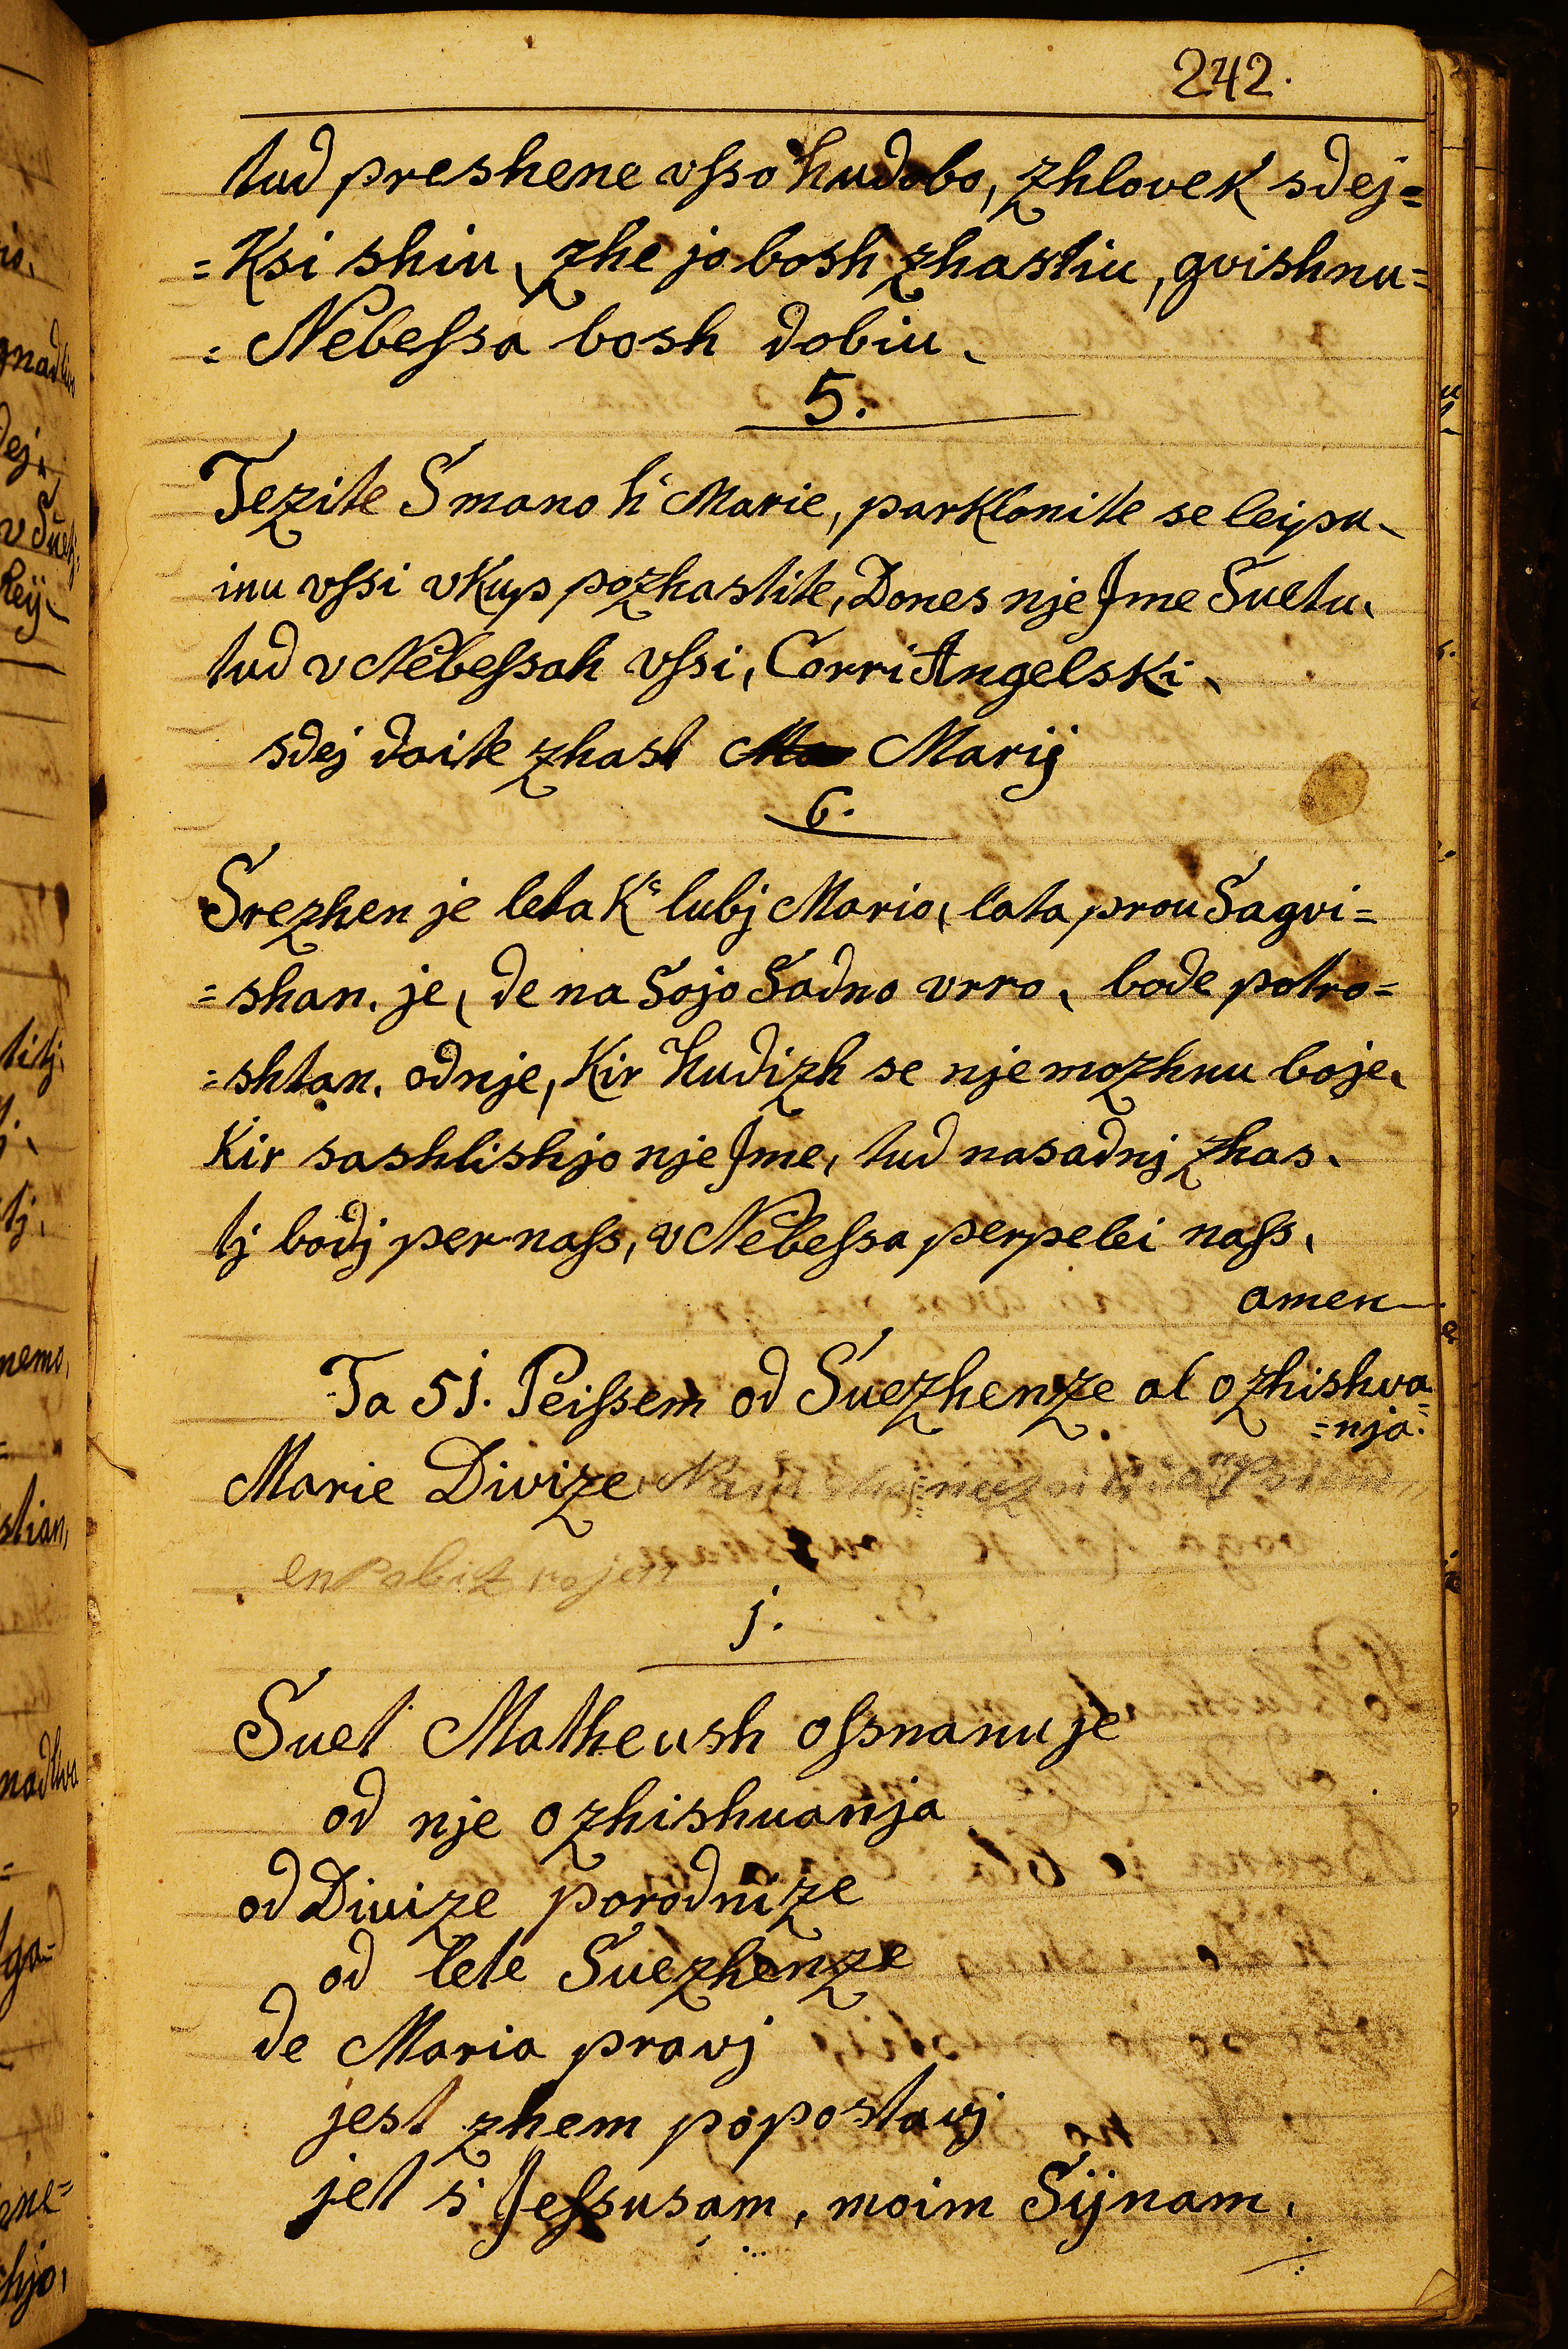 242.
tud preshene vſso hudobo, zhlovek sdej=
=Ksi shiu, zhe jo bosh zhastiu, gvishnu=
=Nebeſsa bosh dobiu.
5.
Tezite Smano h' Marie, parklonite se leipu.
inu vſsi vkup pozhastite, Dones nje Jme Suetu.
tud v Nebeſsah vſsi, Corri Angelski.
sdej doite zhast Marij
6.
Srezhen je leta K' lubj Mario, lata prou Sagvi=
=shan. je, de na Sojo Sadno vrro, bode potro=
=shtan. od nje, Kir hudizh se nje mozhnu boje.
Kir sashlishjo nje Jme, tud nasadnj zhas.
tj bodj per naſs, v Nebeſsa perpelei naſs.
amen
Ta 51. Peiſsem od Suezhenze al ozhishva
=nja.
Marie Divize
en
j.
Suet Matheush oſsnanuje
od nje ozhishuanja
od Divize porodnize
od lete Suezhenze
de Maria pravj
jest zhem popostavj
jet s' Jeſsusam, moim Sijnam.